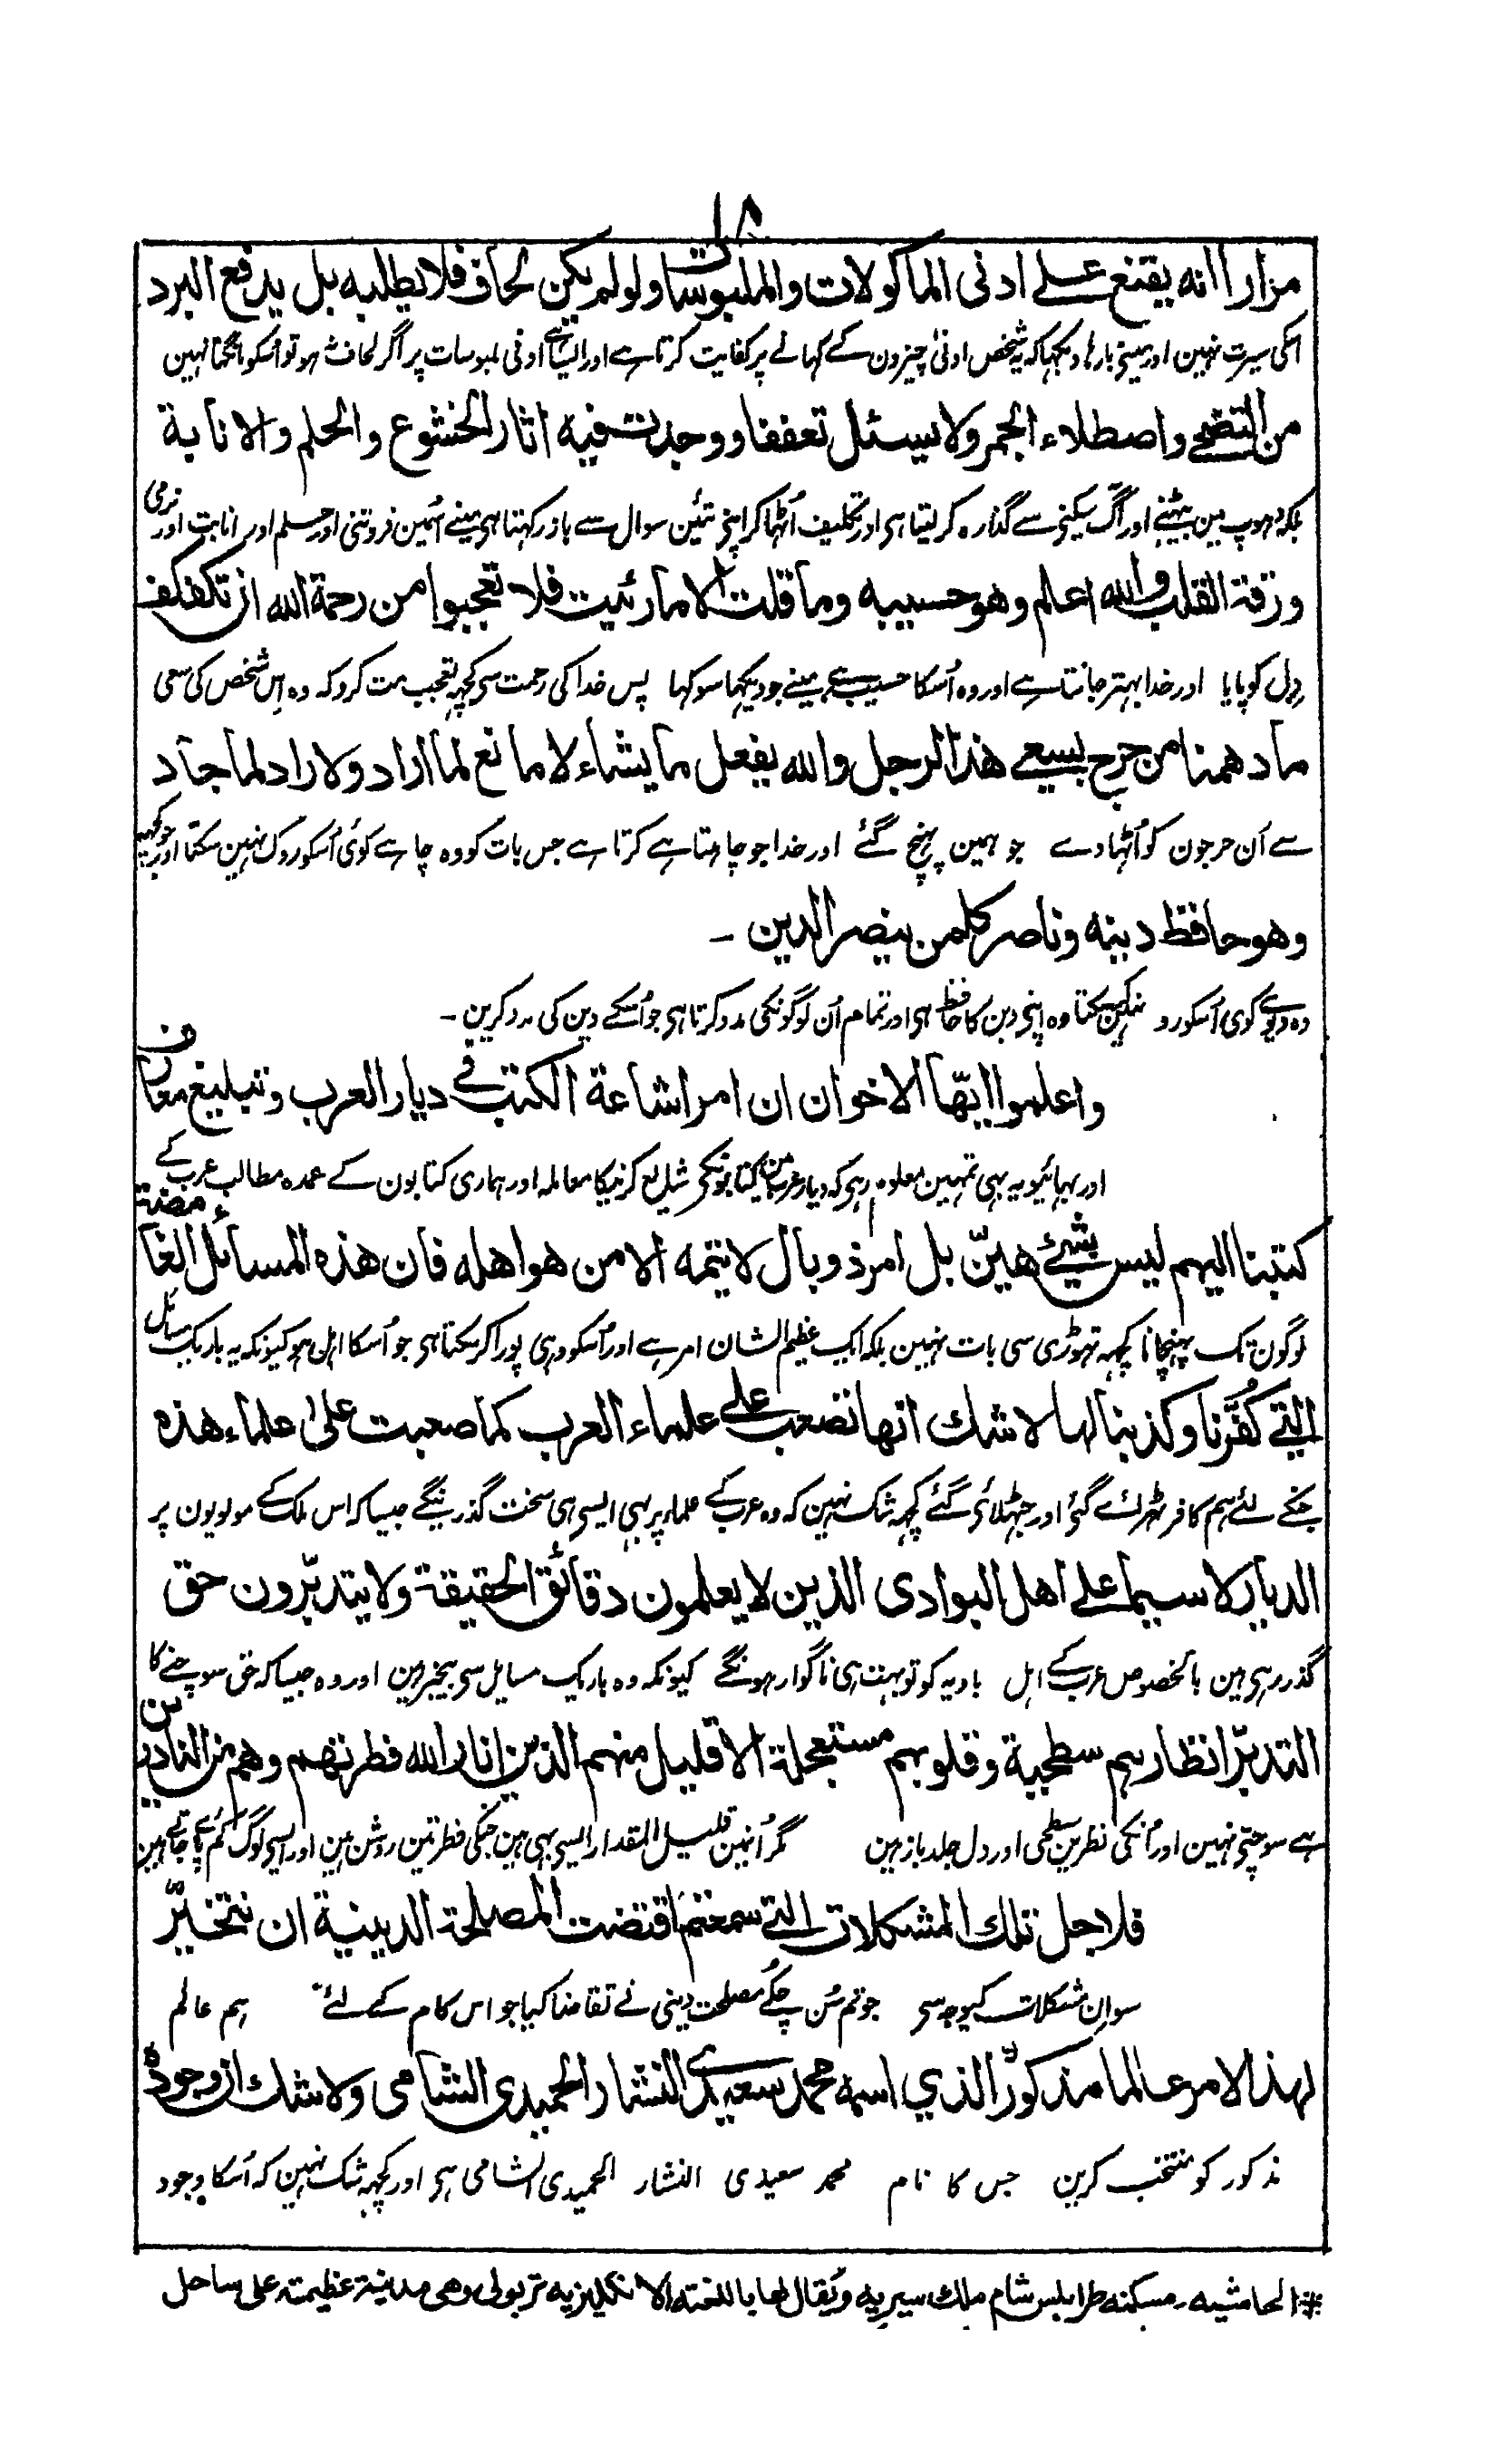 ۱۸
مزارا انه يقتنع على ادنى الماكولات والملبوسات ولو لم يكن لحاف فلا يطلبه بل يدفع البرد
اسکی سیرت نہین اور مینے بارہا دیکہا کہ یہ شخص ادنیٰ چیزون کے کہانے پر کفایت کرتا ہے اور ایسا ہی ادنی ملبوسات پر اگر لحاف نہ ہو تو اُسکو مانگتا نہین
من التضحى واصطلاء الجمر ولا يسئل تعففا ووجدت فيه اثار الخشوع والحلم والانابة
بلکہ دہوپ مین بیٹہنے اور آگ سیکنے سے گذارہ کر لیتا ہی اور تکلیف اُٹہا کر اپنے تئین سوال سے باز رکہتا ہی مینے اسمین فروتنی اور حلم اور انابت اور نرمی
ورقة القلب والله اعلم وهو حسيبه وما قلت الا ما رئيت فلا تعجبوا من رحمة الله ان تكفكف
دِل کو پایا اور خدا بہتر جانتا ہے اور وہ اُسکا حسیب ہے مینے جو دیکہا سو کہا پس خدا کی رحمت سے کچہہ تعجب مت کرو کہ وہ اِس شخص کی سعی
ما دهمنا من حرج بسعى هذا الرجل والله يفعل ما يشاء لا مانع لما اراد ولا راد لما جاد
سے اُن حرجون کو اُٹہا دے جو ہمین پہنچ گئے اور خدا جو چاہتا ہے کرتا ہے جس بات کو وہ چاہے کوئی اُسکو روک نہین سکتا اور جو کچہہ
وهو حافظ دينه وناصر كل من ينصر الدين ـ
وہ دیوے کوی اُسکو رد نہین کر سکتا وہ اپنے دین کا حافظ ہی اور تمام اُن لوگونکی مدد کرتا ہی جو اُسکے دین کی مدد کرین ۔
واعلموا ايّها الاخوان ان امر اشاعة الكتب فى ديار العرب وتبليغ معارف
اور بہائیو یہ بہی تمہین معلوم رہی کہ دیار عرب مین کتابونکے شایع کرنیکا معاملہ اور ہماری کتابون کے عمدہ مطالب عرب کے
كتبنا اليهم ليس بشيء هيّن بل امر ذو بال لا يتمه الا من هو اهله فان هذه المسائل الغامضة
لوگون تک پہنچانا کچہہ تہوڑی سی بات نہین بلکہ ایک عظیم الشان امر ہے اور اُسکو وہی پورا کر سکتا ہی جو اُسکا اہل ہو کیونکہ یہ باریک مسائل
التى كُفّرنا وكذبنا لها لا شك انها تصعب على علماء العرب كما صعبت على علماء هذه
جنکے لئے ہم کافر ٹہرائے گئی اور جہٹلائے گئے کچہہ شک نہین کہ وہ عرب کے علماء پر بہی ایسی ہی سخت گذرینگے جیسا کہ اس ملک کے مولویون پر
الديار لا سيما على اهل البوادى الذين لا يعلمون دقائق الحقيقة ولا يتدبّرون حق
گذر رہی ہین بالخصوص عرب کے اہل بادیہ کو تو بہت ہی ناگوار ہونگے کیونکہ وہ باریک مسایل سے بیخبر ہین اور وہ جیسا کہ حق سوچنے کا
التدبّر انظارهم سطحية وقلوبهم مستعجلة الا قليل منهم الذين انار الله فطرتهم وهم من النادرين
ہے سوچتے نہین اور اُنکی نظرین سطحی اور دل جلد باز ہین مگر اُنمین قلیل المقدار ایسے بہی ہین جنکی فطرتین روشن ہین اور ایسے لوگ کم پائے جاتے ہین
فلاجل تلك المشكلات التى سمعتم اقتضت المصلحة الدينية ان نتخيّر
سو ان مشکلات کیوجہ سے جو تم سُن چکے مصلحت دینی نے تقاضا کیا جو اس کام کے لئے ہم عالم
لهذا الامر عالما مذكورًا الذي اسمه محمد سعيدى النشار الحميدى الشامى ولا شك ان وجوده
مذکور کو منتخب کرین جس کا نام محمد سعیدی النشار الحمیدی الشامی ہی اور کچہہ شک نہین کہ اُسکا وجود
# الحاشيه ـ مسكنه طرابلس شام ملك سيريه ويُقال لها باللغته الانكليزيه تربولى وهى مدينة عظيمته على ساحل